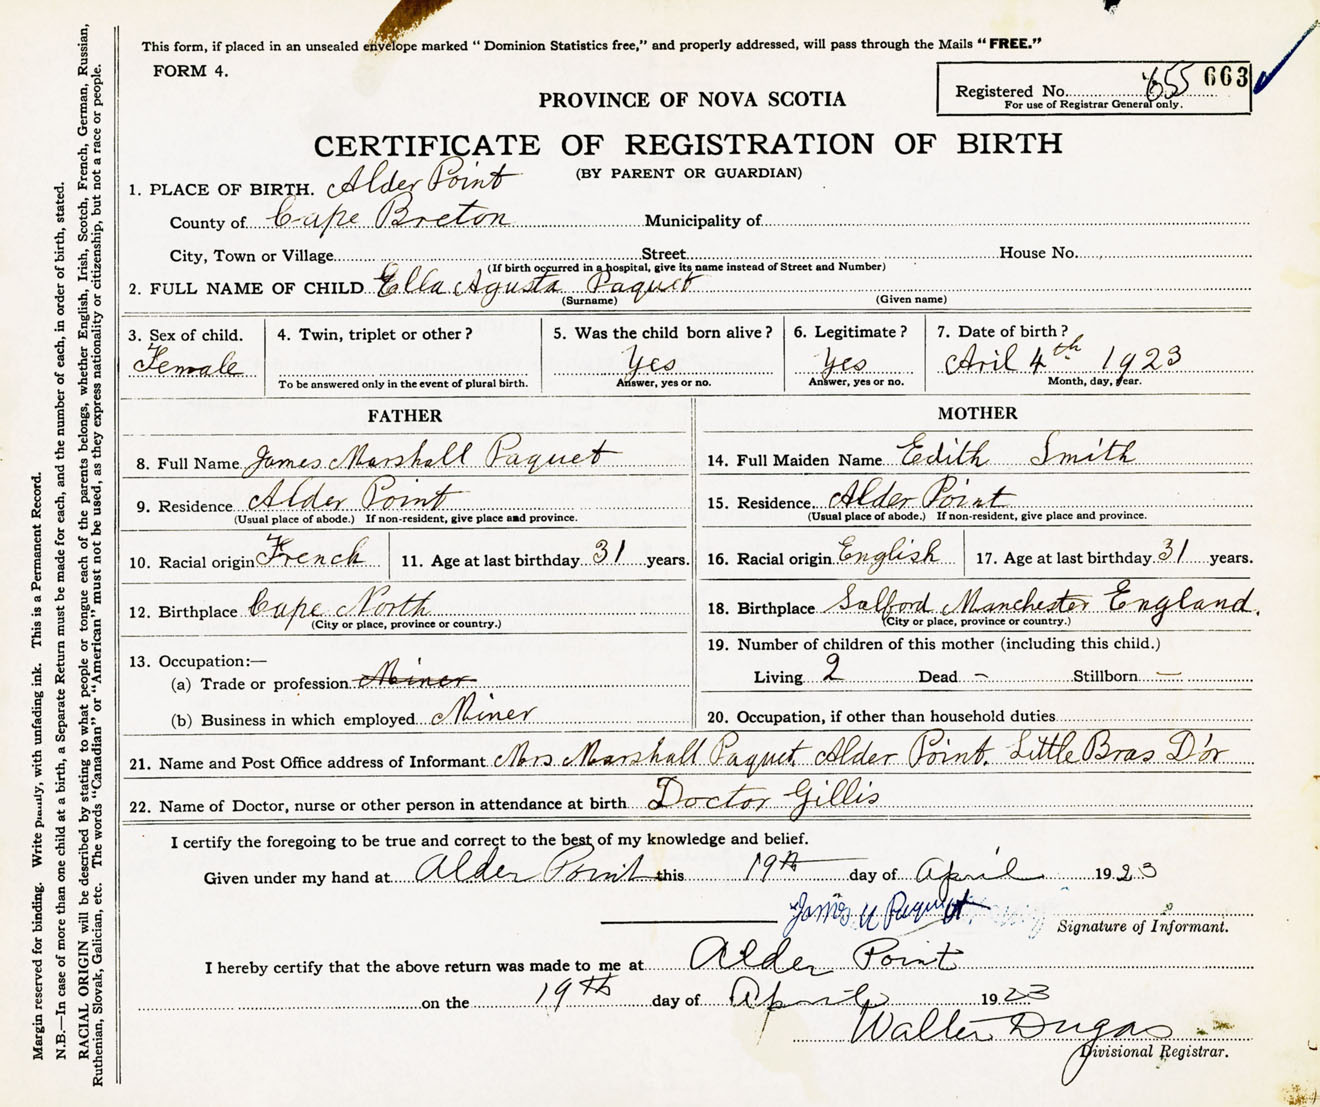 This form, if placed in an unsealed envelope marked "Dominion Statistics free," and properly addressed, will pass through the Mails "FREE."
FORM 4.
Registered No. 655 663
For use of Registrar General only.
PROVINCE OF NOVA SCOTIA
CERTIFICATE OF REGISTRATION OF BIRTH
(BY PARENT OR GUARDIAN)
1. PLACE OF BIRTH. Alder Point
County of Cape Breton Municipality of
City, Town or Village Street House No.
(If birth occurred in a hospital, give its name instead of Street and Number)
2. FULL NAME OF CHILD Ella Agusta Paquet
(Surname) (Given name)
3. Sex of child. 4. Twin, triplet or other? 5. Was the child born alive? 6. Legitimate? 7. Date of birth?
Female Yes Yes Aril 4th 1923
To be answered only in the event of plural birth. Answer, yes or no. Answer, yes or no. Month, day, year.
FATHER MOTHER
8. Full Name James Marshall Paquet 14. Full Maiden Name Edith Smith
9. Residence Alder Point 15. Residence Alder Point
(Usual place of abode.) If non-resident, give place and province. (Usual place of abode.) If non-resident, give place and province.
10. Racial origin French 11. Age at last birthday 31 years. 16. Racial origin English 17. Age at last birthday 31 years.
12. Birthplace Cape North 18. Birthplace Salford Manchester England.
(City or place, province or country.) (City or place, province or country.)
19. Number of children of this mother (including this child.)
13. Occupation:—
(a) Trade or profession Miner Living 2 Dead - Stillborn —
(b) Business in which employed Miner 20. Occupation, if other than household duties
21. Name and Post Office address of Informant Mrs Marshall Paquet. Alder Point. Little Bras D'or
22. Name of Doctor, nurse or other person in attendance at birth Doctor Gillis
I certify the foregoing to be true and correct to the best of my knowledge and belief.
Given under my hand at Alder Point this 19th day of April 1923
James M Paquet
Signature of Informant.
I hereby certify that the above return was made to me at Alder Point
on the 19th day of April 1923
Walter Dugas
Divisional Registrar.
Margin reserved for binding. Write plainly, with unfading ink. This is a Permanent Record.
N.B.—In case of more than one child at a birth, a Separate Return must be made for each, and the number of each, in order of birth, stated.
RACIAL ORIGIN will be described by stating to what people or tongue each of the parents belongs, whether English, Irish, Scotch, French, German, Russian,
Ruthenian, Slovak, Galician, etc. The words "Canadian" or "American" must not be used, as they express nationality or citizenship, but not a race or people.